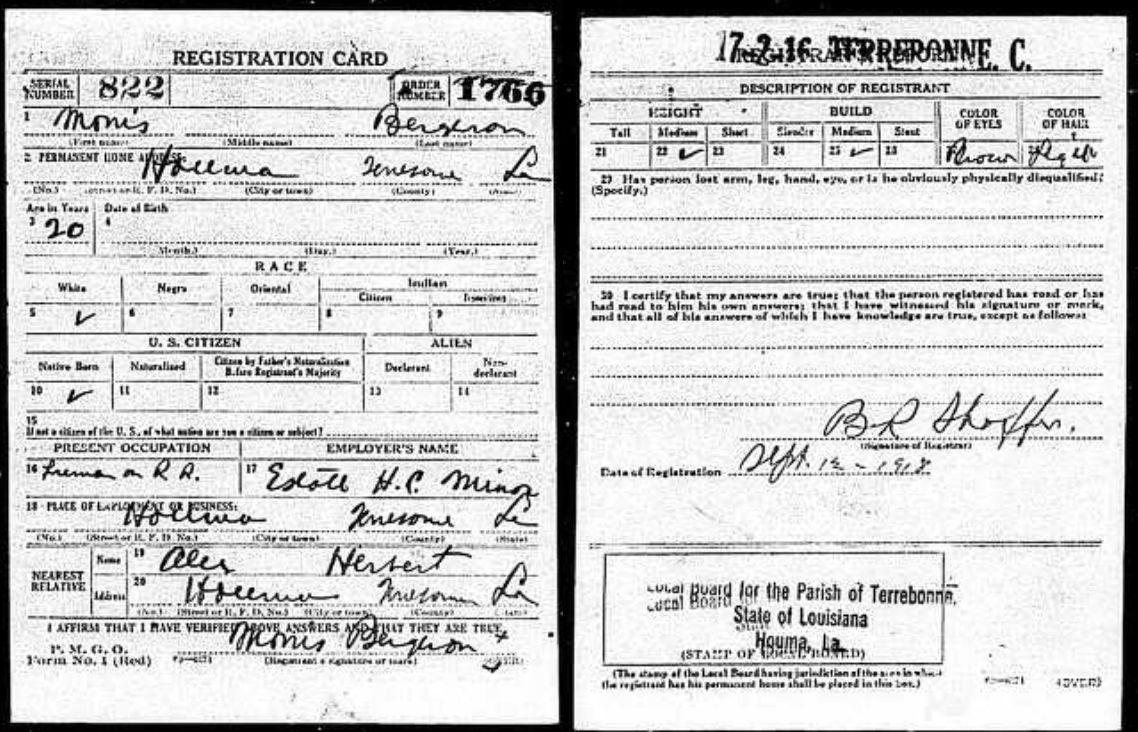 REGISTRATION CARD
SERIAL NUMBER 822 ORDER NUMBER 1766
1 Morris Bergeron
(First name) (Middle name) (Last name)
2 PERMANENT HOME ADDRESS:
La
(No.) (Street or R. F. D. No.) (City or town) (County) (State)
Age in Years Date of Birth
3 20 4
(Month.) (Day.) (Year.)
RACE
White Negro Oriental Indian
Citizen Noncitizen
5 ✓ 6 7 8 9
U. S. CITIZEN ALIEN
Native Born Naturalized Citizen by Father's Naturalization Before Registrant's Majority Declarant Non-declarant
10 ✓ 11 12 13 14
15
If not a citizen of the U. S., of what nation are you a citizen or subject?
PRESENT OCCUPATION EMPLOYER'S NAME
16 on R R. 17 Estate H.C. Minor
18 PLACE OF EMPLOYMENT OR BUSINESS:
La
(No.) (Street or R. F. D. No.) (City or town) (County) (State)
NEAREST RELATIVE
Name 19 Alex Herbert
Address 20 La
(No.) (Street or R. F. D. No.) (City or town) (County) (State)
I AFFIRM THAT I HAVE VERIFIED ABOVE ANSWERS AND THAT THEY ARE TRUE
P. M. G. O.
Form No. 1 (Red) Morris Bergeron
(Registrant's signature or mark) (OVER)
17-2-16 TERREBONNE. C.
REGISTRAR'S REPORT
DESCRIPTION OF REGISTRANT
HEIGHT BUILD COLOR OF EYES COLOR OF HAIR
Tall Medium Short Slender Medium Stout
21 22 ✓ 23 24 25 ✓ 26 Brown
29 Has person lost arm, leg, hand, eye, or is he obviously physically disqualified?
(Specify.)
30 I certify that my answers are true; that the person registered has read or has
had read to him his own answers; that I have witnessed his signature or mark,
and that all of his answers of which I have knowledge are true, except as follows:
B R
(Signature of Registrar)
Date of Registration Sept. 12 - 1918
Local Board for the Parish of Terrebonne,
Local Board
State of Louisiana
Houma, La.
(STAMP OF LOCAL BOARD)
(The stamp of the Local Board having jurisdiction of the area in which
the registrant has his permanent home shall be placed in this box.)
(OVER)